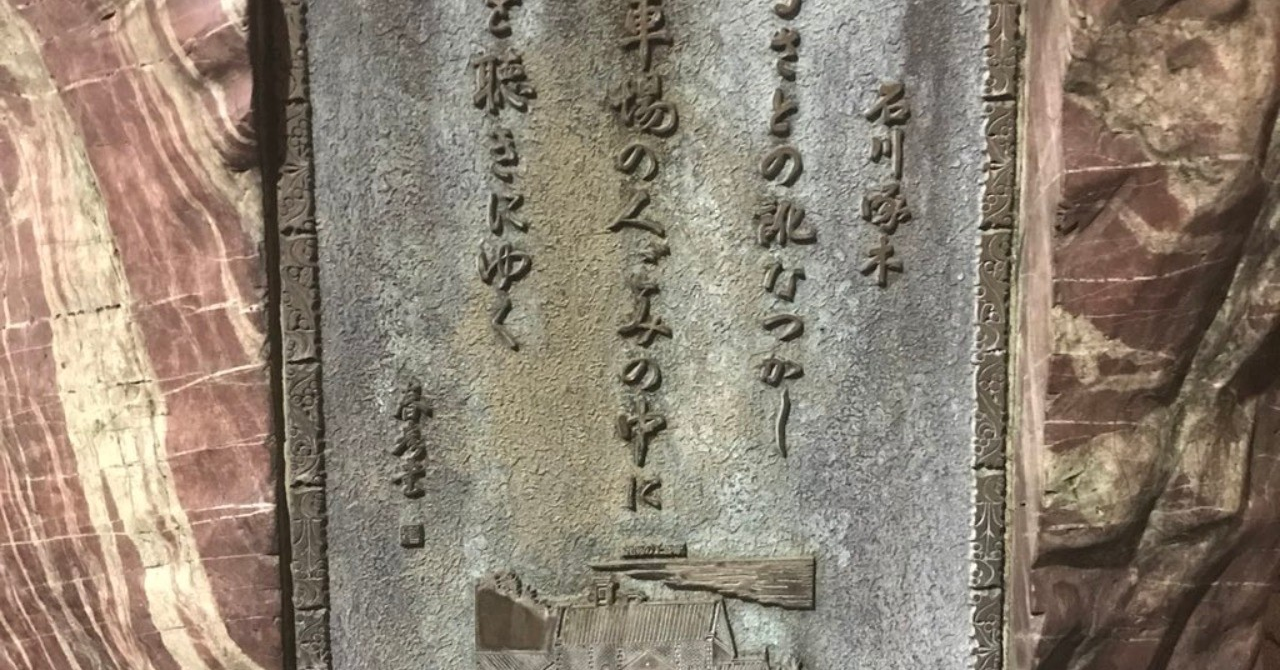 石川啄木
るさとの訛なつかし
車場の人ごみの中に
を聴きにゆく